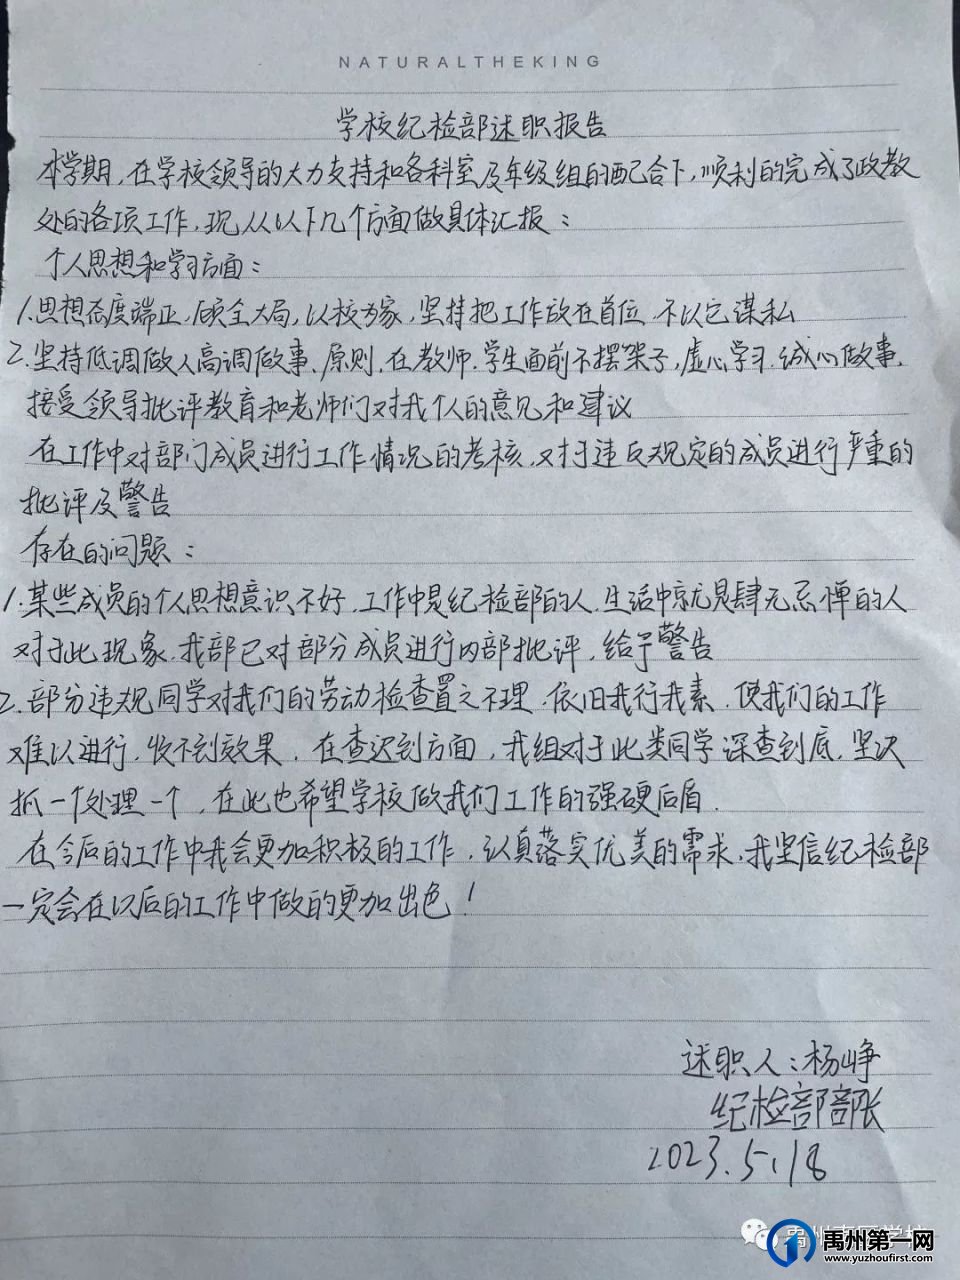 NATURALTHEKING
学校纪检部述职报告
本学期,在学校领导的大力支持和各科室及年级组的配合下,顺利的完成了政教
处的各项工作,现从以下几个方面做具体汇报:
个人思想和学习方面:
1.思想态度端正,顾全大局,以校为家,坚持把工作放在首位,不以它谋私
2.坚持低调做人高调做事,原则,在教师,学生面前不摆架子,虚心学习,诚心做事,
接受领导批评教育和老师们对我个人的意见和建议
在工作中对部门成员进行工作情况的考核,对于违反规定的成员进行严重的
批评及警告
存在的问题:
1.某些成员的个人思想意识不好,工作中是纪检部的人,生活中就是肆无忌惮的人
对于此现象,我部已对部分成员进行内部批评,给予警告
2.部分违规同学对我们的劳动检查置之不理,依旧我行我素,使我们的工作
难以进行,收不到效果,在查迟到方面,我组对于此类同学深查到底,坚决
抓一个处理一个,在此也希望学校做我们工作的强硬后盾.
在今后的工作中我会更加积极的工作,认真落实优美的需求,我坚信纪检部
一定会在以后的工作中做的更加出色!
述职人:杨峥
纪检部部长
2023.5.18
禹州第一网
www.yuzhoufirst.com